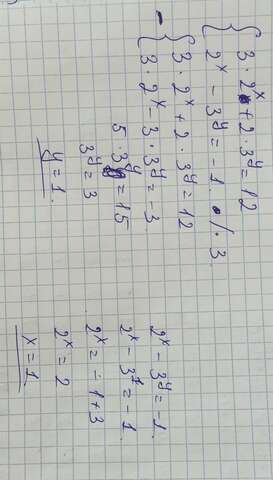 3 · 2ˣ + 2 · 3ʸ = 12
2ˣ - 3ʸ = -1 · /· 3
3 · 2ˣ + 2 · 3ʸ = 12
-
3 · 2ˣ - 3 · 3ʸ = -3
5 · 3ʸ = 15
3ʸ = 3
y = 1.
2ˣ - 3ʸ = -1.
2ˣ - 3¹ = -1.
2ˣ = -1 + 3
2ˣ = 2
x = 1.